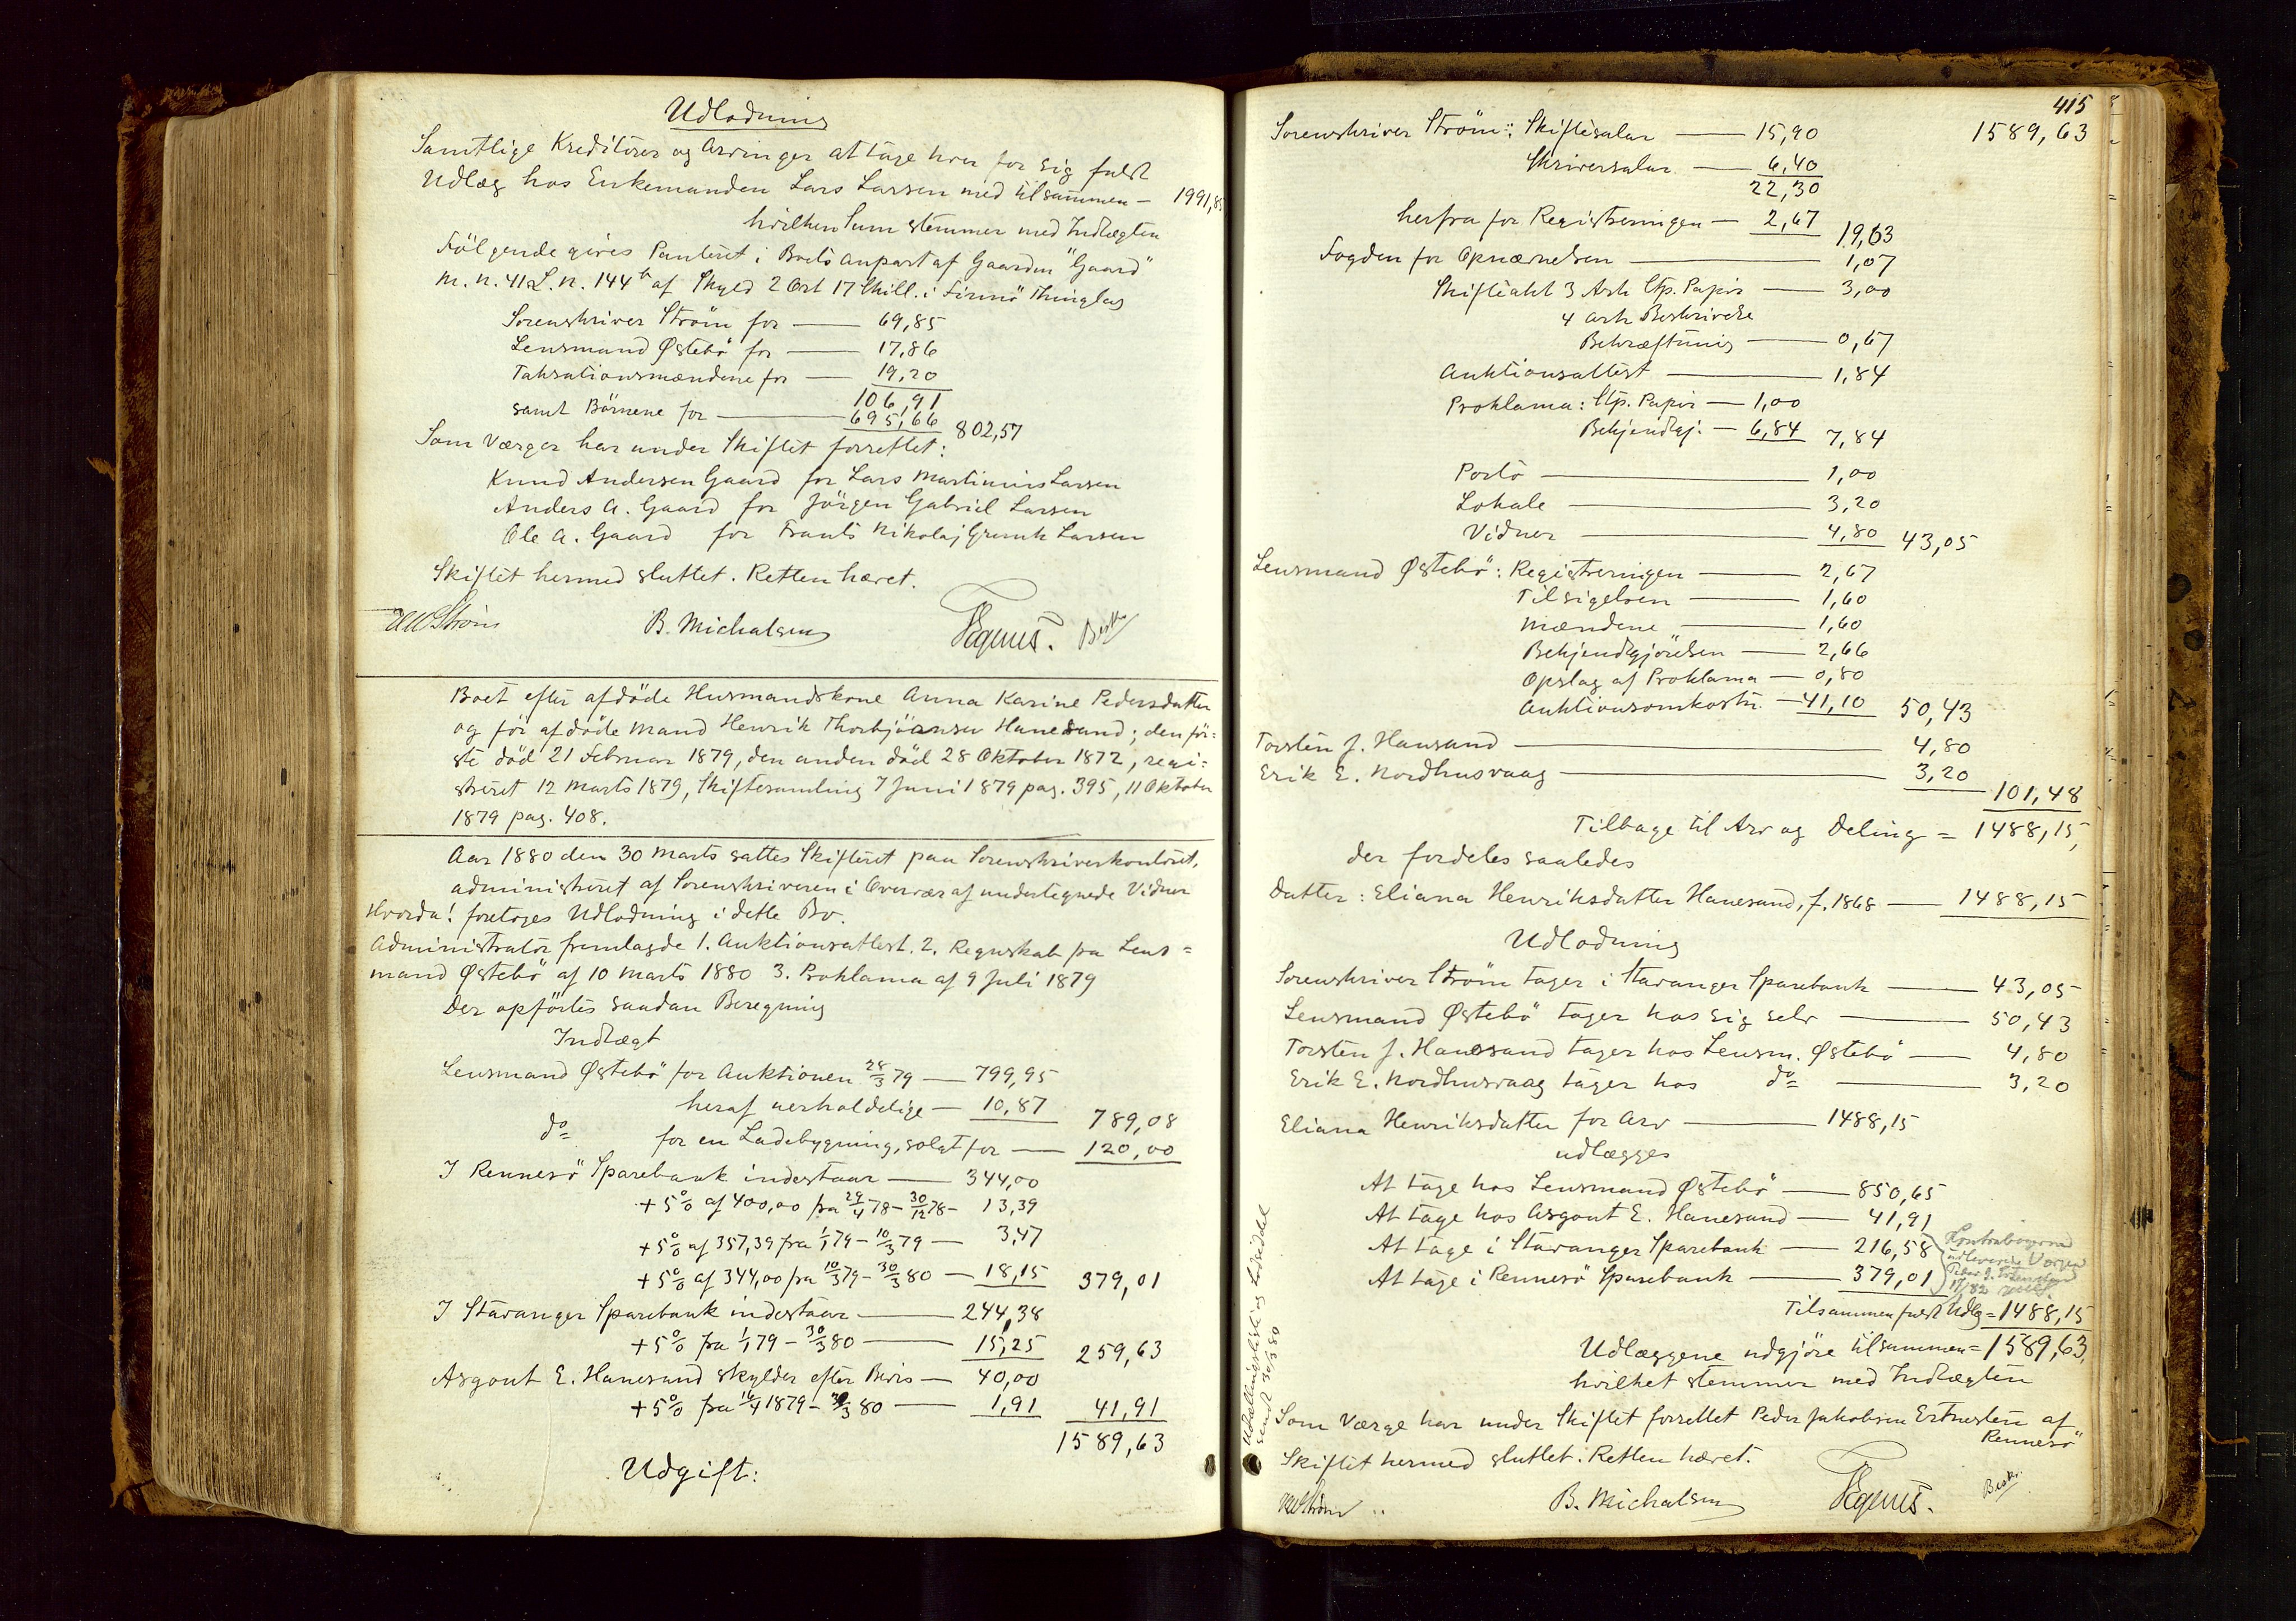 Udlodning
Samtlige Kreditorer og Arvinger at tage hver for sig fuldt
Udlæg hos Enkemanden Lars Larsen med tilsammen — 1991,85
hvilken Sum stemmer med Indtægten
Følgende gives Panteret i Boets Anpart af Gaarden "Gaard"
M. n. 41 L. n. 144 b af Skyld 2 Ort 17 Skill. i Finnö Thinglag
Sorenskriver Ström for — 69,85
Lensmand Østebö for — 17,86
Taksationsmændene for — 19,20
106,91
samt Börnene for — 695,66 802,57
Som Værger har under Skiftet forrettet:
Knud Andersen Gaard for Lars Martinius Larsen
Anders A. Gaard for Jörgen Gabriel Larsen
Ole A. Gaard for Frants Nikolaj Grunk Larsen
Skiftet hermed sluttet. Retten hævet.
Ström B. Michalsen
Boet efter afdöde Husmandskone Anna Karine Pedersdatter
og för afdöde Mand Henrik Thorbjörnsen Hanesand; den för-
ste död 21 Februar 1879, den anden död 28 Oktober 1872, regi-
streret 12 Marts 1879, Skiftesamling 7 Juni 1879 pag. 395, 11 Oktober
1879 pag. 408.
Aar 1880 den 30 Marts sattes Skifteret paa Sorenskriverkontoret,
administreret af Sorenskriveren i Overvær af undertegnede Vidner
Hvorda! foretoges Udlodning i dette Bo.
Administrator fremlagde 1. Auktionsattest. 2. Regnskab fra Lens=
mand Østebö af 10 Marts 1880 3. Proklama af 9 Juli 1879
Der opförtes saadan Beregning
Indtægt
Lensmand Østebö for Auktionen 28/3 79 — 799,95
heraf uerholdelige — 10,87 789,08
do for en Ladebygning, solgt for — 120,00
I Rennesö Sparebank indestaar — 344,00
+ 5% af 400,00 fra 29/4 78 - 30/12 78 - 13,39
+ 5% af 357,39 fra 1/1 79 - 10/3 79 — 3,47
+ 5% af 344,00 fra 10/3 79 - 30/3 80 — 18,15 379,01
I Stavanger Sparebank indestaar — 244,38
+ 5% fra 1/1 79 - 30/3 80 — 15,25 259,63
Asgout E. Hanesand skylder efter Bevis — 40,00
+ 5% fra 16/4 1879 - 30/3 80 — 1,91 41,91
1589,63
Udgift:
415
Sorenskriver Ström: Skiftesalar — 15,90 1589,63
Skriversalar — 6,40
22,30
herfra for Registreringen — 2,67 19,63
Fogden for Opnævnelsen — 1,07
Skifteakt 3 Ark Stp. Papir — 3,00
4 Ark Beskrivelse
Bekræftning — 0,67
Auktionsattest — 1,84
Proklama: Stp. Papir — 1,00
Bekjendtgj. — 6,84 7,84
Porto — 1,00
Lokale — 3,20
Vidner — 4,80 43,05
Lensmand Østebö: Registreringen — 2,67
Tilsigelsen — 1,60
Mændene — 1,60
Bekjendtgjörelsen — 2,66
Opslag af Proklama — 0,80
Auktionsomkostn. — 41,10 50,43
Torsten J. Hansand — 4,80
Erik E. Nordhusvaag — 3,20
101,48
Tilbage til Arv og Deling = 1488,15,
der fordeles saaledes
Datter: Eliana Henriksdatter Hanesand, f. 1868 — 1488,15
Udlodning
Sorenskriver Ström tager i Stavanger Sparebank — 43,05
Lensmand Østebö tager hos sig selv — 50,43
Torsten J. Hanesand tager hos Lensm. Østebö — 4,80
Erik E. Nordhusvaag tager hos do — 3,20
Eliana Henriksdatter for Arv — 1488,15
udlægges
At tage hos Lensmand Østebö — 850,65
At tage hos Asgout E. Hanesand — 41,91
At tage i Stavanger Sparebank — 216,58
At tage i Rennesö Sparebank — 379,01
Kontrabögerne
udleverede Værgen
Tilsammen fuldt Udlg = 1488,15
Udlæggene udgjöre tilsammen = 1589,63,
hvilket stemmer med Indtægten
Som Værge har under Skiftet forrettet Peder Jakobsen Ertnesten af
Rennesö
Skiftet hermed sluttet. Retten hævet.
Ström B. Michalsen
Udsællingslist og Lodseddel
sendt 30/3 80